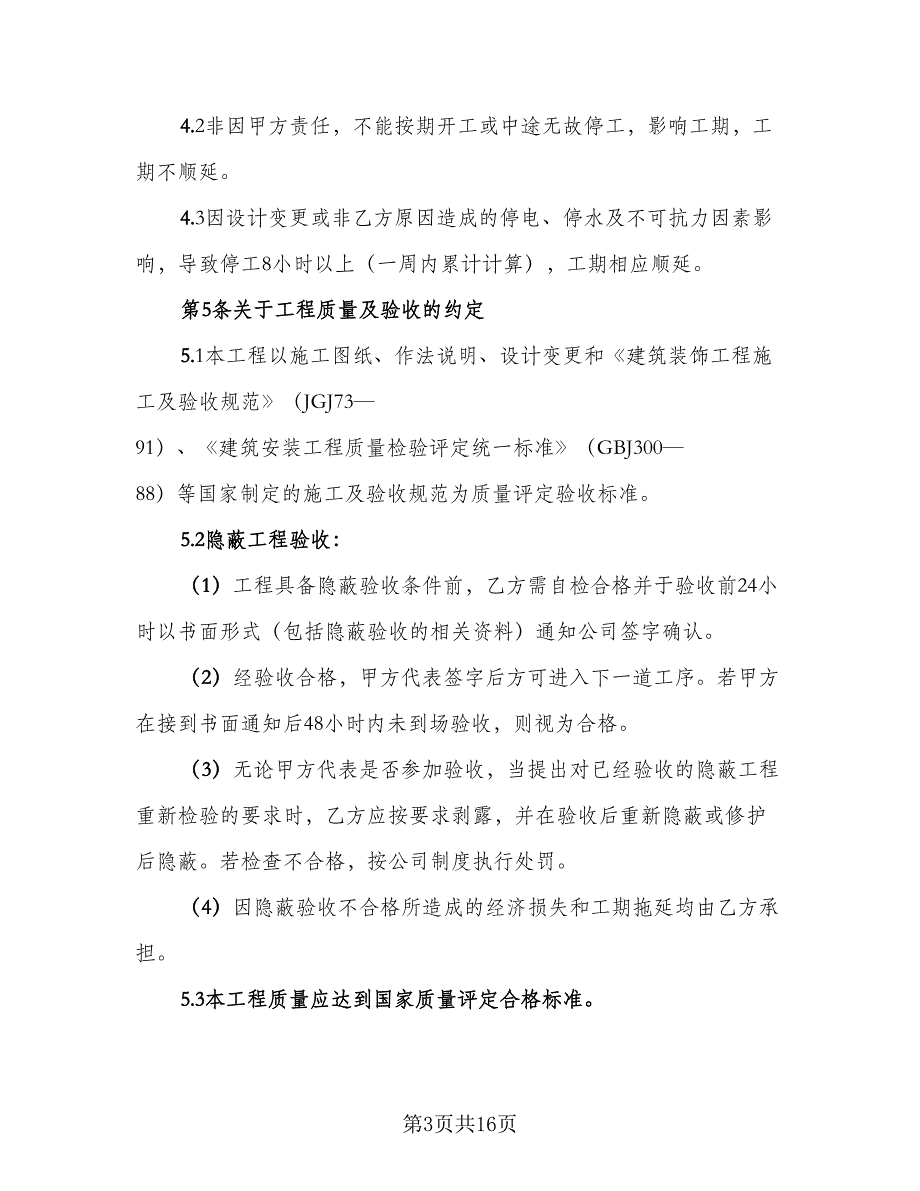 4.2非因甲方责任，不能按期开工或中途无故停工，影响工期，工
期不顺延。
4.3因设计变更或非乙方原因造成的停电、停水及不可抗力因素影
响，导致停工8小时以上（一周内累计计算），工期相应顺延。
第5条关于工程质量及验收的约定
5.1本工程以施工图纸、作法说明、设计变更和《建筑装饰工程施
工及验收规范》（JGJ73—
91）、《建筑安装工程质量检验评定统一标准》（GBJ300—
88）等国家制定的施工及验收规范为质量评定验收标准。
5.2隐蔽工程验收：
（1）工程具备隐蔽验收条件前，乙方需自检合格并于验收前24小
时以书面形式（包括隐蔽验收的相关资料）通知公司签字确认。
（2）经验收合格，甲方代表签字后方可进入下一道工序。若甲方
在接到书面通知后48小时内未到场验收，则视为合格。
（3）无论甲方代表是否参加验收，当提出对已经验收的隐蔽工程
重新检验的要求时，乙方应按要求剥露，并在验收后重新隐蔽或修护
后隐蔽。若检查不合格，按公司制度执行处罚。
（4）因隐蔽验收不合格所造成的经济损失和工期拖延均由乙方承
担。
5.3本工程质量应达到国家质量评定合格标准。
第3页共16页